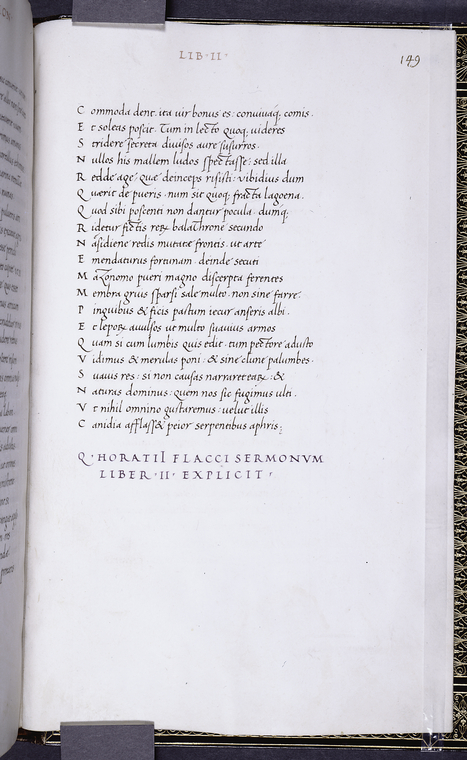 LIB·II·
149
C ommoda dent. ita uir bonus es: conuiuaq; comis.
E t soleas poscit. Tum in lecto quoq; uideres
S tridore secreta diuisos aure susurros.
N ullos his mallem ludos spectasse: sed illa
R edde age: quae deinceps risisti: vibidius dum
Q uaerit de pueris. num sit quoq; fracta lagoena.
Q uod sibi poscenti non dantur pocula. dumq;
R idetur fictis rerꝝ balathrone secundo
N asidiene redis mutatae frontis. ut arte
E mendaturus fortunam. deinde secuti
M azonomo pueri magno discerpta ferentes
M embra gruis sparsi sale multo. non sine farre.
P inguibus & ficis pastum iecur anseris albi.
E t leporꝝ auulsos ut multo suauius armos
Q uam si cum lumbis quis edit. tum pectore adusto
V idimus & merulas poni: & sine clune palumbes.
S uaues res: si non causas narraret earꝝ: &
N aturas dominus: quem nos sic fugimus ulti.
V t nihil omnino gustaremus: uelut illis
C anidia afflass& peior serpentibus aphris;
Q·HORATII FLACCI SERMONVM
LIBER·II·EXPLICIT·